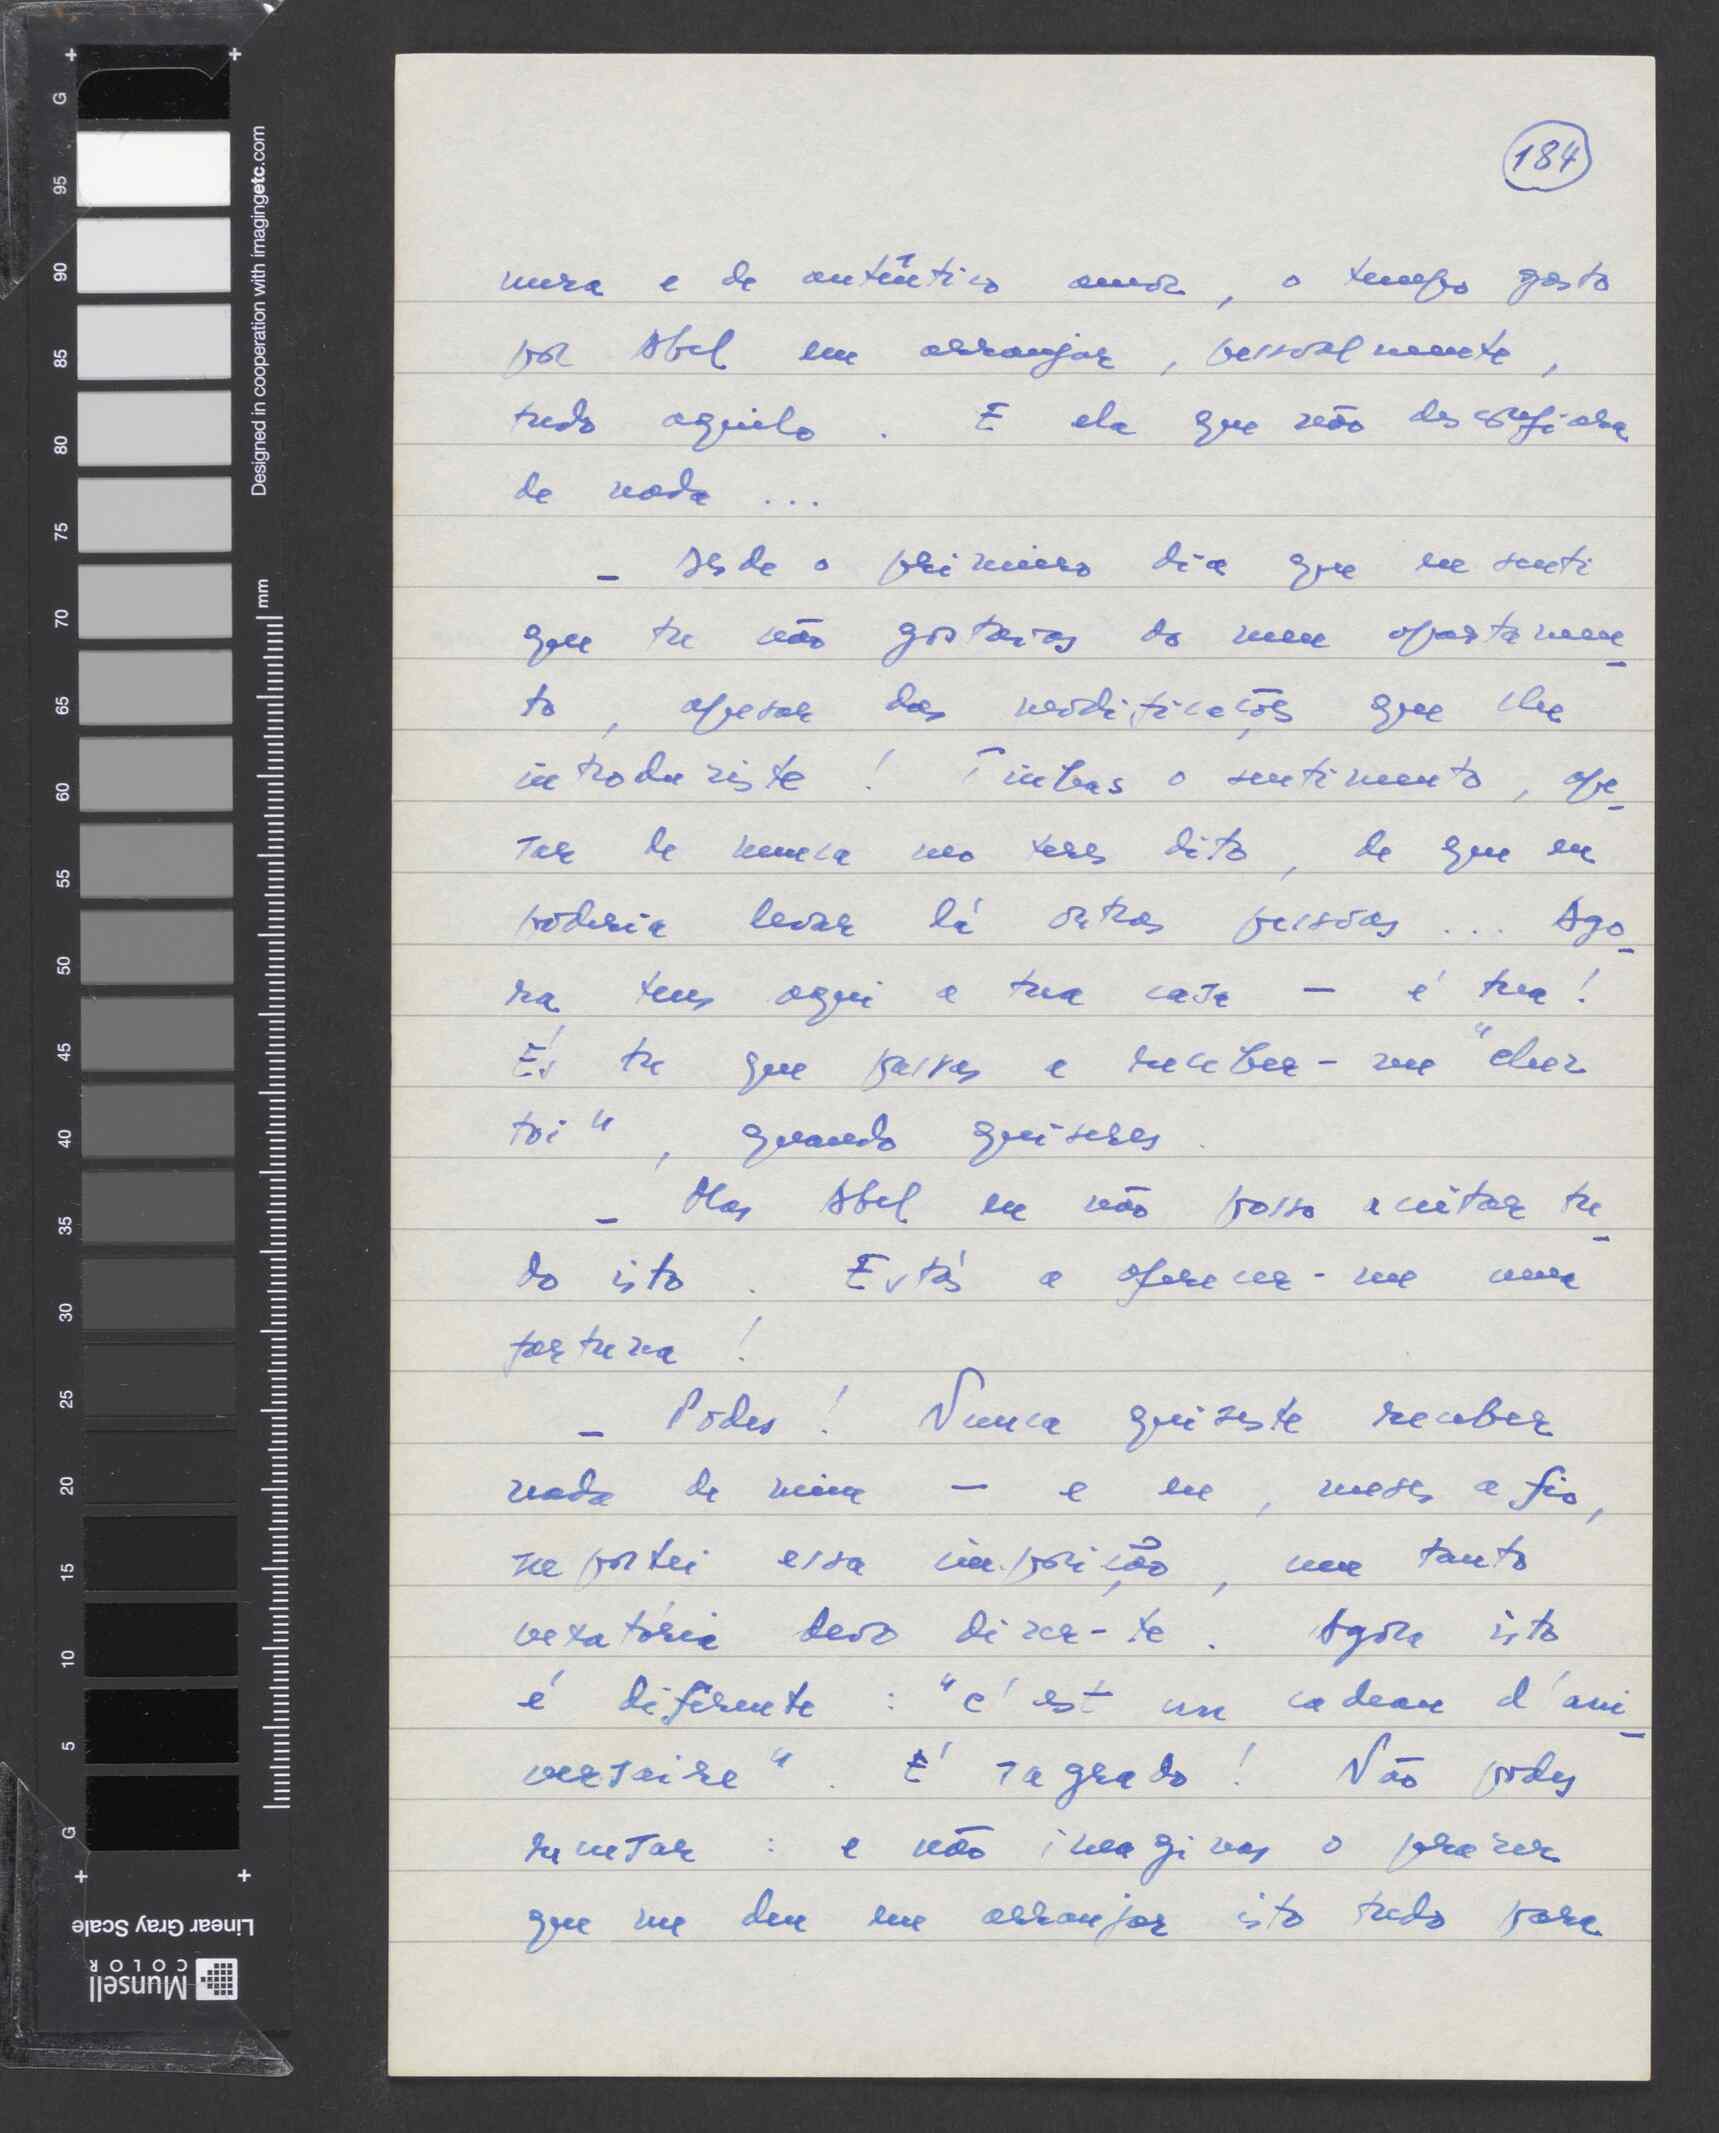 184
nura e de autêntico amor, o tempo gasto
por Abel em arranjar, pessoalmente,
tudo aquilo. E ela que não desconfiara
de nada ...
- Desde o primeiro dia que eu senti
que tu não gostavas do meu apartamen-
to, apesar das modificações que lhe
introduziste! Tinhas o sentimento, ape-
sar de nunca mo teres dito, de que eu
poderia levar lá outras pessoas ... Ago-
ra tens aqui a tua casa — é tua!
És tu que passas a receber-me "chez
toi", quando quiseres.
- Mas Abel eu não posso aceitar tu-
do isto. Estás a oferecer-me uma
fortuna!
- Podes! Nunca quiseste receber
nada de mim — e eu, meses a fio,
suportei essa imposição, um tanto
vexatória devo dizer-te. Agora isto
é diferente: "c'est un cadeau d'ani-
versaire". É sagrado! Não podes
recusar: e não imaginas o prazer
que me deu em arranjar isto tudo para
Designed in cooperation with imagingetc.com
mm
G
95
90
85
80
75
70
65
60
55
50
45
40
35
30
25
20
15
10
5
G
Linear Gray Scale
Munsell
COLOR